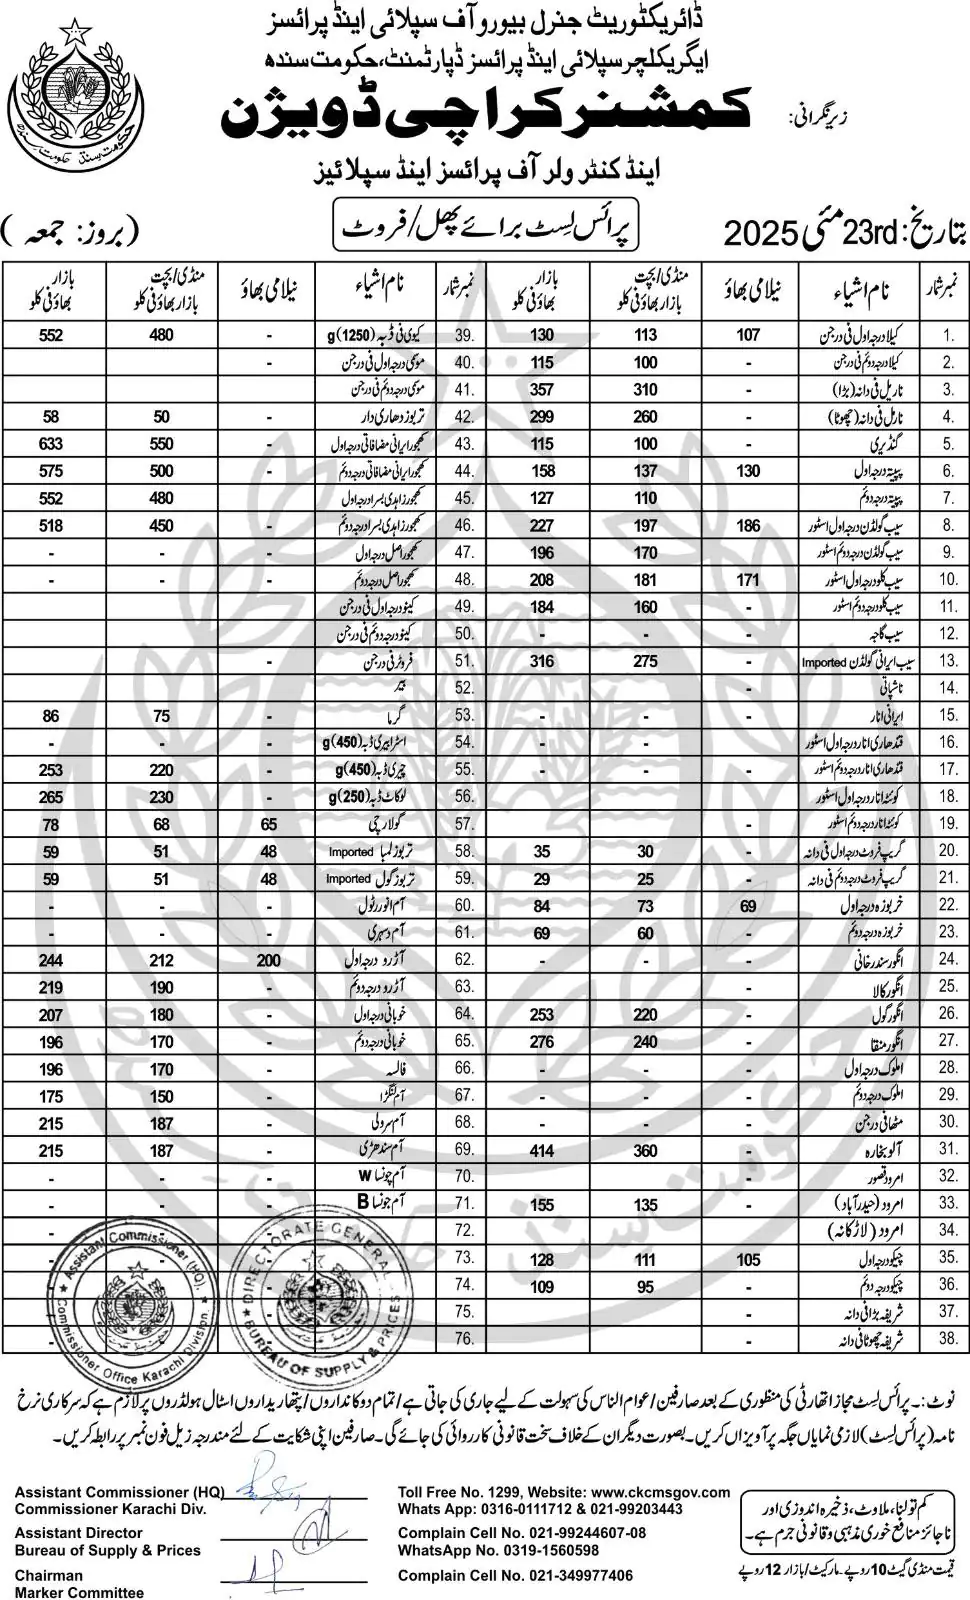 ڈائریکٹوریٹ جنرل بیورو آف سپلائی اینڈ پرائسز
ایگریکلچر سپلائی اینڈ پرائسز ڈپارٹمنٹ، حکومت سندھ
زیر نگرانی: کمشنر کراچی ڈویژن
اینڈ کنٹرولر آف پرائسز اینڈ سپلائیز
بتاریخ: 23rd مئی 2025 پرائس لسٹ برائے پھل/فروٹ (بروز: جمعہ)
نمبر شمار نام اشیاء نیلامی بھاؤ منڈی/بچت بازار بھاؤ فی کلو بازار بھاؤ فی کلو نمبر شمار نام اشیاء نیلامی بھاؤ منڈی/بچت بازار بھاؤ فی کلو بازار بھاؤ فی کلو
1. کیلا درجہ اول فی درجن 107 113 130 39. کیوی فی ڈبہ (1250)g - 480 552
2. کیلا درجہ دوئم فی درجن - 100 115 40. موسمی درجہ اول فی درجن -
3. ناریل فی دانہ (بڑا) - 310 357 41. موسمی درجہ دوئم فی درجن
4. ناریل فی دانہ (چھوٹا) - 260 299 42. تربوز دھاری دار - 50 58
5. گنڈیری - 100 115 43. کھجور ایرانی مضافاتی درجہ اول - 550 633
6. پپیتہ درجہ اول 130 137 158 44. کھجور ایرانی مضافاتی درجہ دوئم - 500 575
7. پپیتہ درجہ دوئم - 110 127 45. کھجور زاہدی بسرا درجہ اول - 480 552
8. سیب گولڈن درجہ اول اسٹور 186 197 227 46. کھجور زاہدی بسرا درجہ دوئم - 450 518
9. سیب گولڈن درجہ دوئم اسٹور - 170 196 47. کھجور اصل درجہ اول - - -
10. سیب کلو درجہ اول اسٹور 171 181 208 48. کھجور اصل درجہ دوئم - - -
11. سیب کلو درجہ دوئم اسٹور - 160 184 49. کینو درجہ اول فی درجن -
12. سیب گاجہ - - - 50. کینو درجہ دوئم فی درجن -
13. سیب ایرانی گولڈن Imported - 275 316 51. فروٹر فی درجن -
14. ناشپاتی - 52. بیر
15. ایرانی انار - - - 53. گرما - 75 86
16. قندھاری انار درجہ اول اسٹور - - - 54. اسٹرابیری ڈبہ (450)g - - -
17. قندھاری انار درجہ دوئم اسٹور - - - 55. چیری ڈبہ (450)g - 220 253
18. کوئٹہ انار درجہ اول اسٹور - 56. لوکاٹ ڈبہ (250)g - 230 265
19. کوئٹہ انار درجہ دوئم اسٹور - 57. گولارچی 65 68 78
20. گریپ فروٹ درجہ اول فی دانہ - 30 35 58. تربوز لمبا Imported 48 51 59
21. گریپ فروٹ درجہ دوئم فی دانہ - 25 29 59. تربوز گول Imported 48 51 59
22. خربوزہ درجہ اول 69 73 84 60. آم انور رٹول - - -
23. خربوزہ درجہ دوئم - 60 69 61. آم دسہری - - -
24. انگور سندرخانی - - - 62. آڑو درجہ اول 200 212 244
25. انگور کالا 63. آڑو درجہ دوئم - 190 219
26. انگور گول - 220 253 64. خوبانی درجہ اول - 180 207
27. انگور منقا - 240 276 65. خوبانی درجہ دوئم - 170 196
28. املوک درجہ اول - - - 66. فالسہ - 170 196
29. املوک درجہ دوئم - - - 67. آم لنگڑا - 150 175
30. مٹھا فی درجن - - - 68. آم سرولی - 187 215
31. آلو بخارہ - 360 414 69. آم سندھڑی - 187 215
32. امرود قصور - 70. آم چونسا W - - -
33. امرود (حیدرآباد) - 135 155 71. آم چونسا B - - -
34. امرود (لاڑکانہ) 72. -
35. چیکو درجہ اول 105 111 128 73. -
36. چیکو درجہ دوئم - 95 109 74. -
37. شریفہ بڑا فی دانہ - 75. -
38. شریفہ چھوٹا فی دانہ - 76. -
Assistant Commissioner (HQ).
Commissioner Office Karachi Division.
DIRECTORATE GENERAL
BUREAU OF SUPPLY & PRICES
نوٹ:۔ پرائس لسٹ مجاز اتھارٹی کی منظوری کے بعد صارفین/عوام الناس کی سہولت کے لیے جاری کی جاتی ہے/تمام دوکانداروں/پتھاریداروں اسٹال ہولڈروں پر لازم ہے کہ سرکاری نرخ
نامہ (پرائس لسٹ) لازمی نمایاں جگہ پر آویزاں کریں۔ بصورت دیگر ان کے خلاف سخت قانونی کارروائی کی جائے گی۔ صارفین اپنی شکایت کے لئے مندرجہ زیل فون نمبر پر رابطہ کریں۔
Assistant Commissioner (HQ)
Commissioner Karachi Div.
Assistant Director
Bureau of Supply & Prices
Chairman
Marker Committee
Toll Free No. 1299, Website: www.ckcmsgov.com
Whats App: 0316-0111712 & 021-99203443
Complain Cell No. 021-99244607-08
WhatsApp No. 0319-1560598
Complain Cell No. 021-349977406
کم تولنا، ملاوٹ، ذخیرہ اندوزی اور
ناجائز منافع خوری مذہبی و قانونی جرم ہے۔
قیمت منڈی گیٹ 10 روپے۔ مارکیٹ/بازار 12 روپے